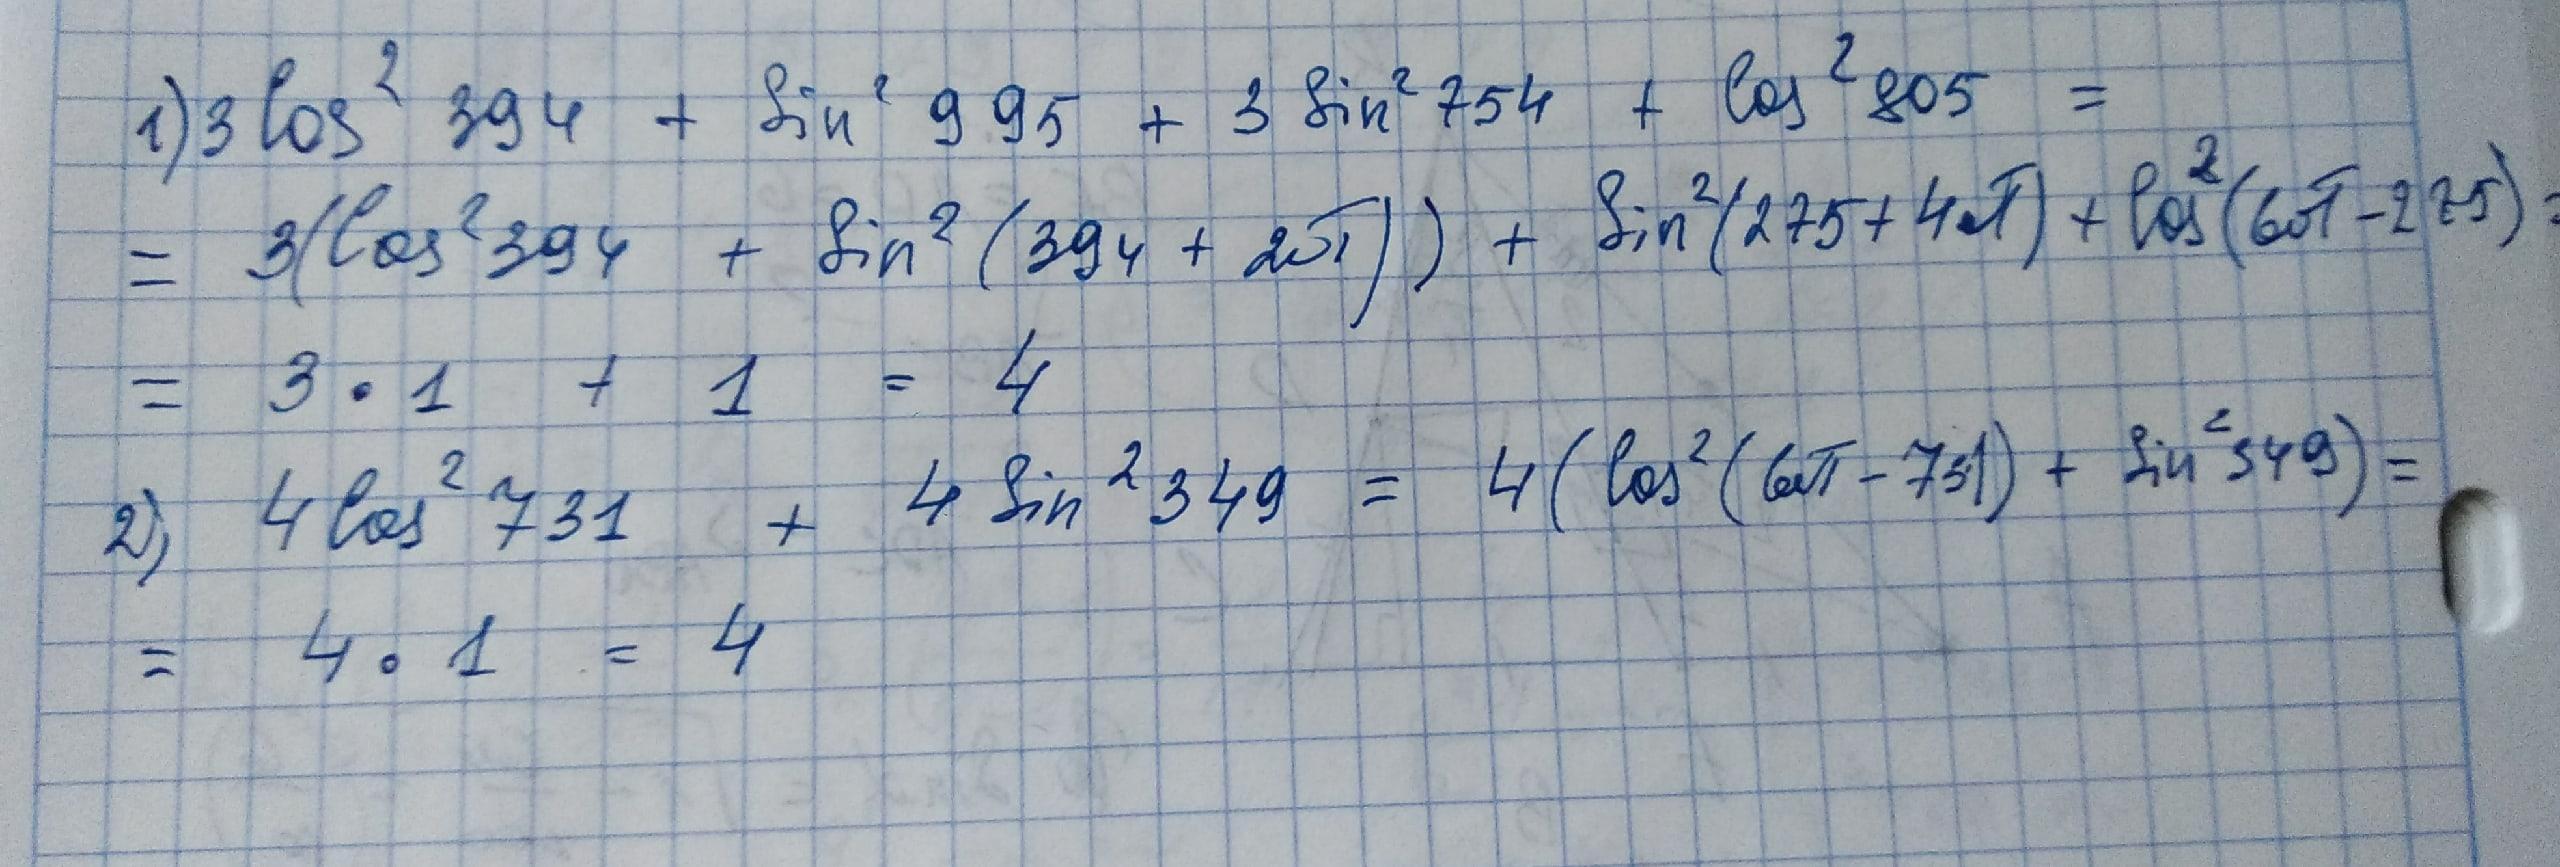 1) 3 cos² 394 + sin² 995 + 3 sin² 754 + cos² 805 =
= 3(cos² 394 + sin² (394 + 2π)) + sin² (275 + 4π) + cos² (6π - 275) =
= 3 · 1 + 1 = 4
2) 4 cos² 731 + 4 sin² 349 = 4 (cos² (6π - 731) + sin² 349) =
= 4 · 1 = 4